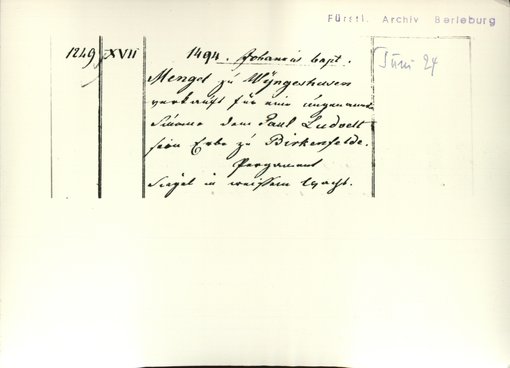 Fürstl. Archiv Berleburg
1249 XVII 1494. Johannis bapt. Juni 24
Mengel zu Wyngeshusen
verkauft für eine ungenannte
Summe dem Paul Ludoelt
sein Erbe zu Birkenfelde.
Pergament
Siegel in weissem Wachs.